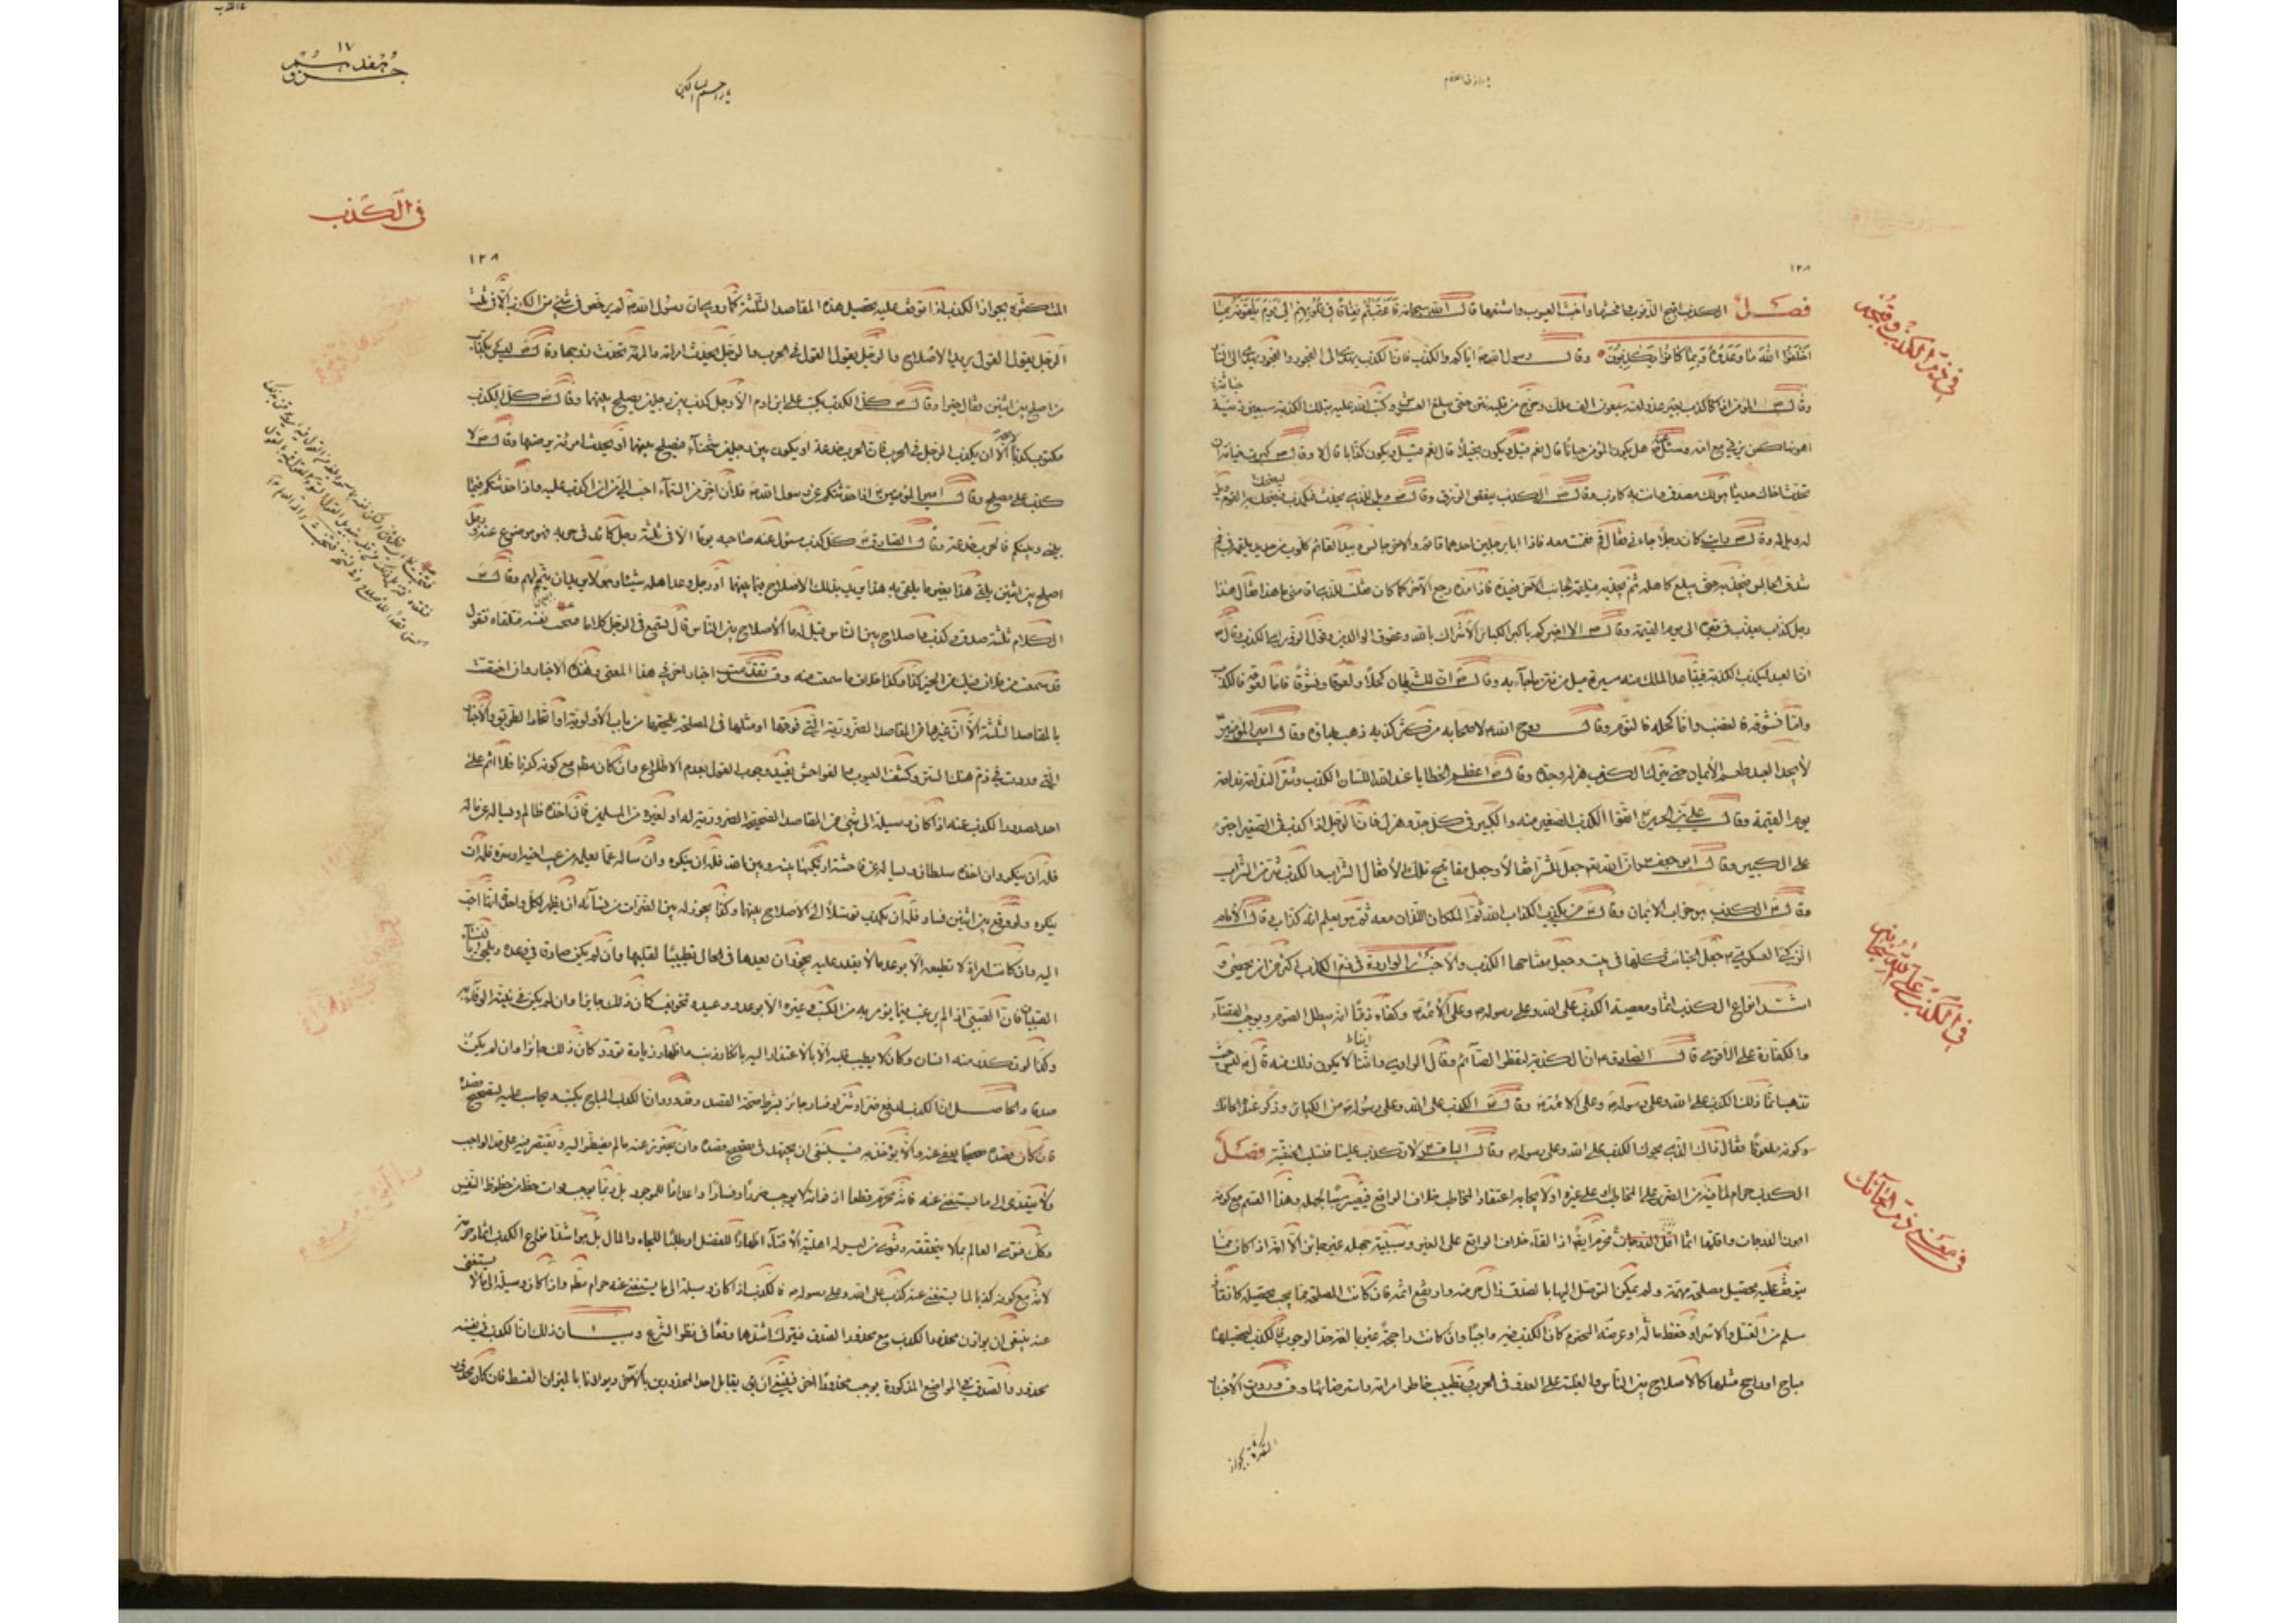 فصل الكذب اقبح الذنوب وافحشها واخبث العيوب واشنعها قال الله سبحانه فَاَعْقَبَهُم نِفاقاً في قُلُوبِهِم اِلى يَوْمِ يَلْقَوْنَهُ بِما
اَخْلَفُوا اللهَ ما وَعَدُوهُ وَبِما كانُوا يَكْذِبُونَ وقال رسول الله ص اياكم والكذب فان الكذب يهدى الى الفجور والفجور يهدى الى النار
وقال ص المؤمن اذا كذب بغير عذر لعنه سبعون الف ملك وخرج من قلبه نتن حتى يبلغ العرش وكتب الله عليه بتلك الكذبة سبعين زنية
اهونها كمن يزنى مع امه وسئل ص هل يكون المؤمن جبانا قال نعم قيل ويكون بخيلا قال نعم قيل ويكون كذابا قال لا وقال ص كبرت خيانة ان
تحدث اخاك حديثا هو لك مصدق وانت به كاذب وقال ص الكذب ينقص الرزق وقال ص ويل للذى يحدث فيكذب ليضحك به القوم ويل
له ويل له وقال ص رايت كان رجلا جاءنى فقال لى قم فقمت معه فاذا انا برجلين احدهما قائم والاخر جالس بيد القائم كلوب من حديد يلقمه فى
شدق الجالس فيجذبه حتى يبلغ كاهله ثم يجذبه فيلقمه الجانب الاخر فيمده فاذا مده رجع الاخر كما كان فقلت للذى اقامنى ما هذا فقال هذا
رجل كذاب يعذب فى قبره الى يوم القيمة وقال ص الا اخبركم باكبر الكبائر الاشراك بالله وعقوق الوالدين وقول الزور اى الكذب وقال ص
ان العبد ليكذب الكذبة فيتباعد الملك منه مسيرة ميل من نتن ما جاء به وقال ص ان للشيطان كحلا ولعوقا ونشوقا فاما لعوقه فالكذب
واما نشوقه فالغضب واما كحله فالنوم وقال روح الله ع لاصحابه من كثر كذبه ذهب بهاؤه وقال امير المؤمنين
لا يجد العبد طعم الايمان حتى يترك الكذب هزله وجده وقال ع اعظم الخطايا عند الله اللسان الكذب وشر الندامة ندامة
يوم القيمة وقال على بن الحسين ع اتقوا الكذب الصغير منه والكبير فى كل جد وهزل فان الرجل اذا كذب فى الصغير اجترء
على الكبير وقال ابو جعفر ع ان الله تع جعل للشر اقفالا وجعل مفاتيح تلك الاقفال الشراب والكذب شر من الشراب
وقال ع الكذب هو خراب الايمان وقال ع من يكذب الكذاب الله ثم الملكان اللذان معه ثم هو يعلم انه كذاب وقال الامام
الزكى العسكرى ع جعل الخبائث كلها فى بيت وجعل مفتاحها الكذب والاخبار الواردة فى ذم الكذب اكثر من ان تحصى و
اشد انواع الكذب اثما ومعصية الكذب على الله وعلى رسوله وعلى الائمة ع وكفاه ذما انه يبطل الصوم ويوجب القضاء
والكفارة على الاقوى قال الصادق ع ان الكذبة لتفطر الصائم فقال الراوى واينا لا يكون ذلك منه قال ع ليس حيث
تذهب انما ذلك الكذب على الله وعلى رسوله وعلى الائمة ع وقال ع الكذب على الله وعلى رسوله من الكبائر وذكر عنده الحائك
وكونه ملعونا فقال ذاك الذى يحوك الكذب على الله وعلى رسوله وقال الباقر ع لا تكذب علينا فتسلب الحنفية فصل
الكذب حرام لما فيه من الضرر على المخاطب او على غيره او لايجابه اعتقاد المخاطب خلاف الواقع فيصير سببا لجهله وهذا القسم مع كونه
اهون الدرجات واقلها اثما محرم ايضا اذ القاء خلاف الواقع على الغير وسببية جهله غير جائز الا انه اذا كان مما
يتوقف عليه تحصيل مصلحة مهمة ولم يمكن التوصل اليها بالصدق زال حرمته وارتفع اثمه فان كانت المصلحة مما يجب تحصيله كانقاذ
مسلم من القتل والاسر او حفظ ماله او عرضه المحترم كان الكذب فيه واجبا وان كانت راجحة غير بالغة حد الوجوب فالكذب لتحصيلها
مباح او راجح مثلها كالاصلاح بين الناس والغلبة على العدو فى الحرب وتطييب خاطر امراته واسترضائها وقد وردت الاخبار
فى ذم الكذب وقبحه
فى الكذب على الله سبحانه
فى معنى ذم الحائك
١٢٨
١٧
جزو هفدهم
يا راحم المساكين
فى الكذب
١٢٨
المتكثرة بجواز الكذب اذا توقف عليه تحصيل هذه المقاصد الثلثة كما روى ان رسول الله ص لم يرخص فى شئ من الكذب الا فى ثلث
الرجل يقول القول يريد الاصلاح والرجل يقول القول فى الحرب والرجل يحدث امراته والمراة تحدث زوجها وقال ص ليس بكذاب
من اصلح بين اثنين فقال خيرا وقال ص كل الكذب يكتب على ابن ادم الا رجل كذب بين رجلين يصلح بينهما وقال ص كل الكذب
مكتوب كذبا الا ان يكذب الرجل فى الحرب فان الحرب خدعة او يكون بين رجلين شحناء فيصلح بينهما او يحدث امرئته يرضيها وقال ص لا
كذب على مصلح وقال امير المؤمنين ع اذا حدثتكم عن رسول الله ص فلان اخر من السماء احب الى من ان اكذب عليه واذا حدثتكم فيما
بينى وبينكم فالحرب خدعة وقال الصادق ع كل كذب مسئول عنه صاحبه يوما الا فى ثلثة رجل كائد فى حربه فهو موضوع عنه ورجل
اصلح بين اثنين يلقى هذا بغير ما يلقى به هذا يريد بذلك الاصلاح فيما بينهما او رجل وعد اهله شيئا وهو لا يريد ان يتم لهم وقال ع
الكلام ثلثة صدق وكذب واصلاح بين الناس قيل له ما الاصلاح بين الناس قال تسمع فى الرجل كلاما فتخبث نفسه فتلقاه فتقول
قد سمعت من فلان فيك من الخير كذا وكذا خلاف ما سمعت منه وقد تقدمت اخبار اخر فى هذا المعنى وهذه الاخبار وان اختصت
بالمقاصد الثلثة الا ان غيرها من المقاصد الضرورية التى فوقها او مثلها فى المصلحة يلحقها من باب الاولوية او اتحاد الطريق والاخبار
التى وردت فى ذم هتك الستر وكشف العيوب والفواحش يفيد وجوب القول بعدم الاطلاع وان كان مطلع مع كونه كذبا فلا اثم على
احد بصدور الكذب عنه اذا كان وسيلة الى شئ من المقاصد الصحيحة الضرورية له او لغيره من المسلمين فان اخذه ظالم وساله عن ماله
فله ان ينكر وان اخذه سلطان وساله عن فاحشة ارتكبها بينه وبين الله فله ان ينكره وان ساله عما يعلمه من عيب اخيه او سره فله ان
ينكره ولو وقع بين اثنين فساد فله ان يكذب توسلا الى الاصلاح بينهما وكذا يجوز له بين الضرات من نسائه ان يظهر لكل واحدة انها احب
اليه وان كانت امراة لا تطيعه الا بوعد ما لا يقدر عليه يجوز ان يعدها فى الحال تطييبا لقلبها وان لم يكن صادقا فى وعده ويلحق بالنساء
الصبيان فان الصبى اذا لم يرغب فيما يؤمر به من الكتب وغيره الا بوعد ووعيد وتخويف كان ذلك جائزا وان لم يكن فى نيته الوفاء به
وكذا لو تكدر منه انسان وكان لا يطيب قلبه الا بالاعتذار اليه بانكار ذنب واظهار زيادة تودد كان ذلك جائزا وان لم يكن
صدقا والحاصل ان الكذب لدفع ضرر او شر او فساد جائز بشرط صحة القصد وقد ورد ان الكذب المباح يكتب ويحاسب عليه لتصحيح قصده
فان كان قصده صحيحا يعفى عنه والا يؤخذ به فينبغى ان يجتهد فى تصحيح قصده وان يحترز عنه ما لم يضطر اليه ويقتصر فيه على قدر الواجب
ولا يتعدى الى ما يستغنى عنه فانه محرم قطعا اذ فواته لا يوجب ضررا وفسادا واعداما للموجود بل انما يوجب فوات حظ من حظوظ النفس
وكذا فتوى العالم بما لا يتحققه وفتوى من ليس له اهلية الافتاء اظهارا للفضل او طلبا للجاه والمال بل هو اشد انواع الكذب اثما وحرمة
لانه مع كونه كذبا لما يستغنى عنه كذب على الله وعلى رسوله فالكذب اذا كان وسيلة الى ما يستغنى عنه حرام مطلقا واذا كان وسيلة الى ما لا يستغنى
عنه ينبغى ان يوازن محذور الكذب مع محذور الصدق فيترك اشدهما وقعا فى نظر الشرع وبيان ذلك ان الكذب فى نفسه
محذور والصدق فى المواضع المذكورة يوجب محذورا اخر فينبغى ان يقابل احد المحذورين بالاخر ويوازنا بالميزان القسط فان كان محذور